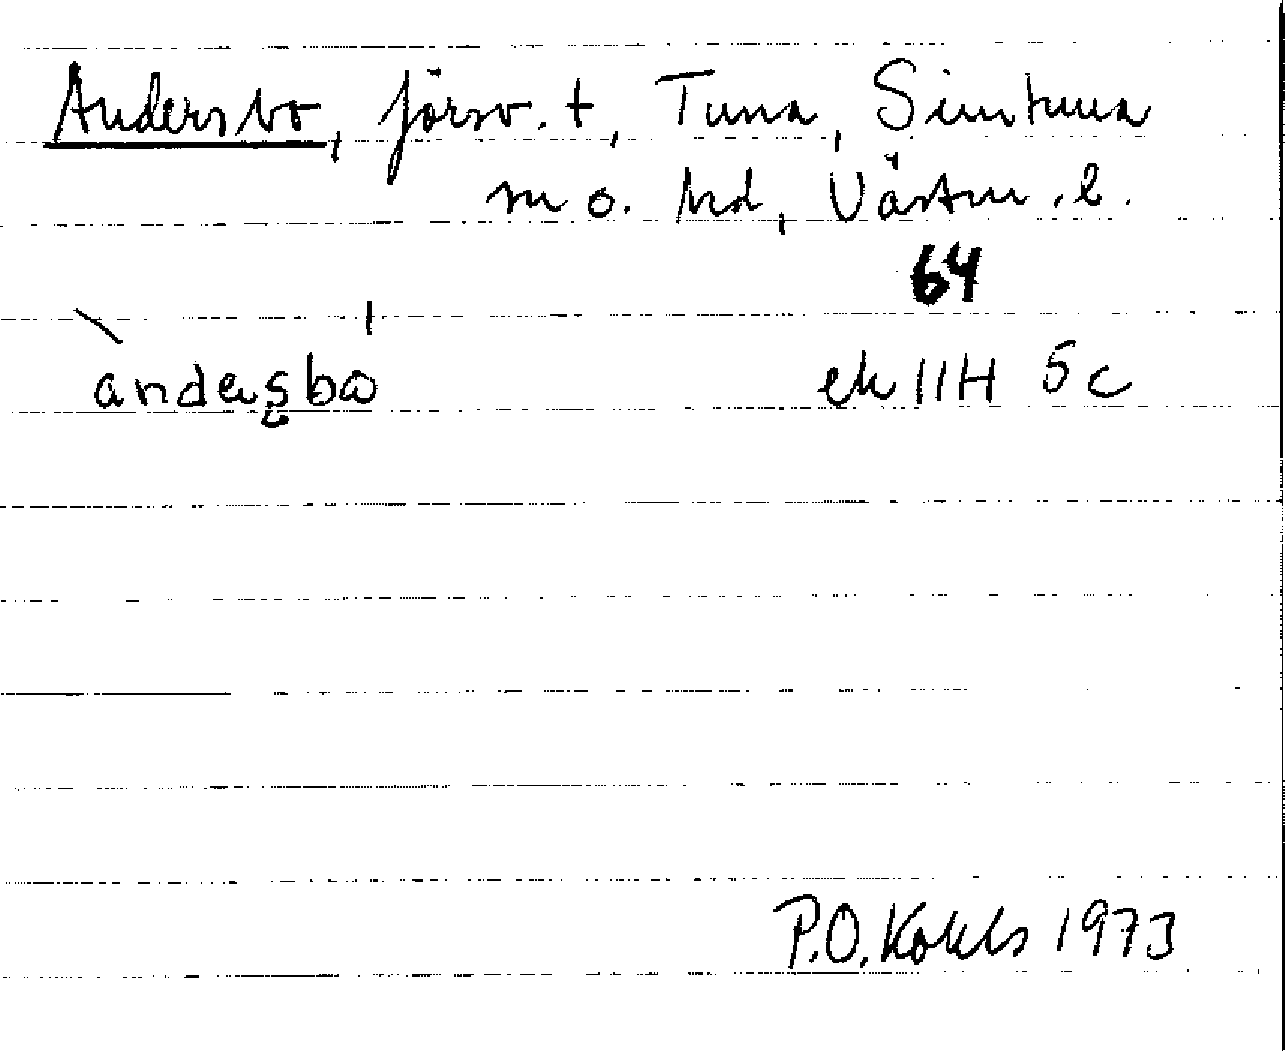 Andersbo, försv. t, Tuna, Simtuna
m o. hd, Västm. l.
64
andersbo
ek 11H 5c
P.O. Kohls 1973